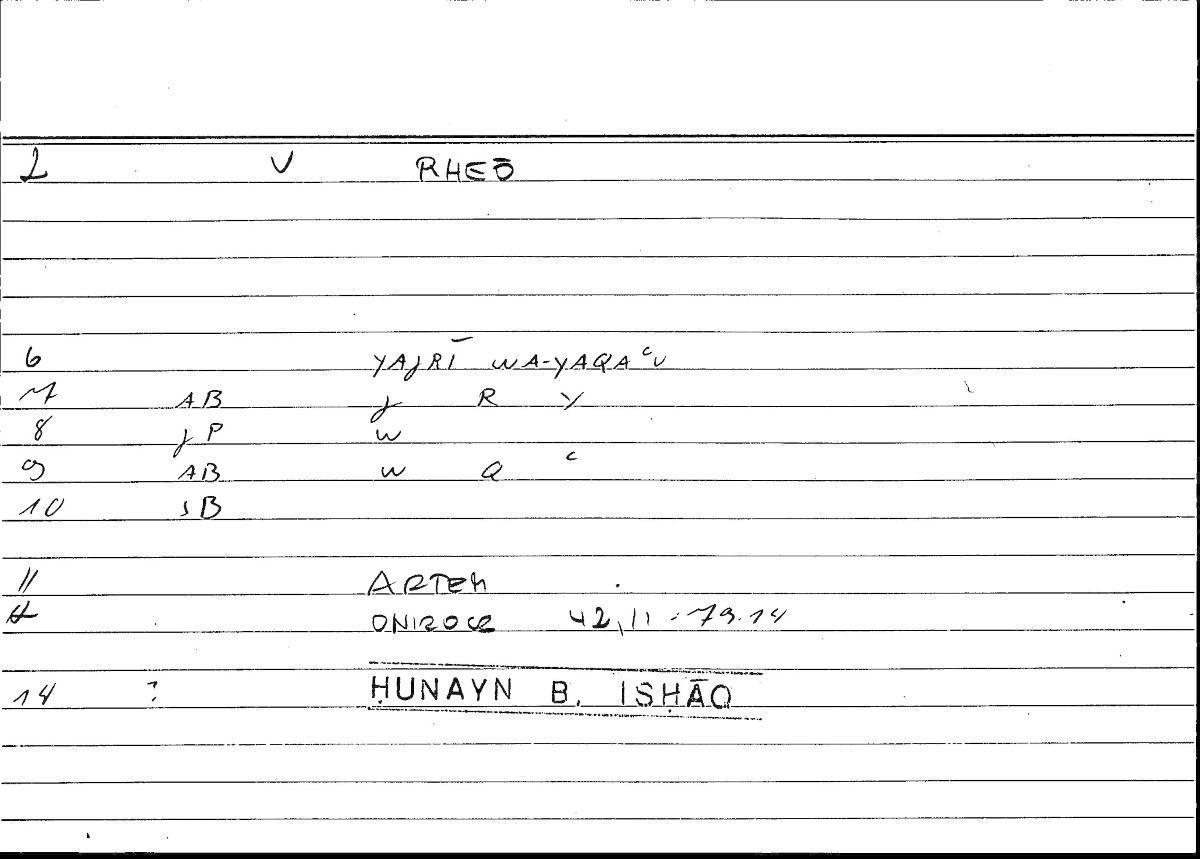 2 V RHEŌ
6 YAJRĪ WA-YAQAʿU
7 AB J R Y
8 JP W
9 AB W Q ʿ
10 SB
11 ARTEM
ONIROCR 42,11 = 79.14
14 ? ḤUNAYN B. ISḤĀQ